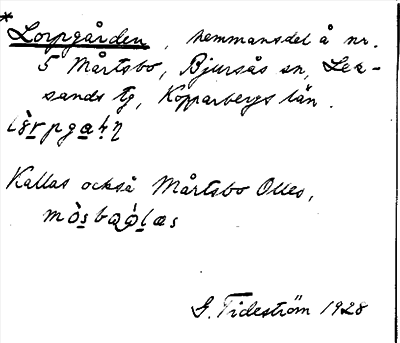 * Lorpgården, hemmansdel å nr.
5 Mårtsbo, Bjursås sn, Lek-
sands tg, Kopparbergs län.
Kallas också Mårtsbo Olles,
G. Tideström 1928